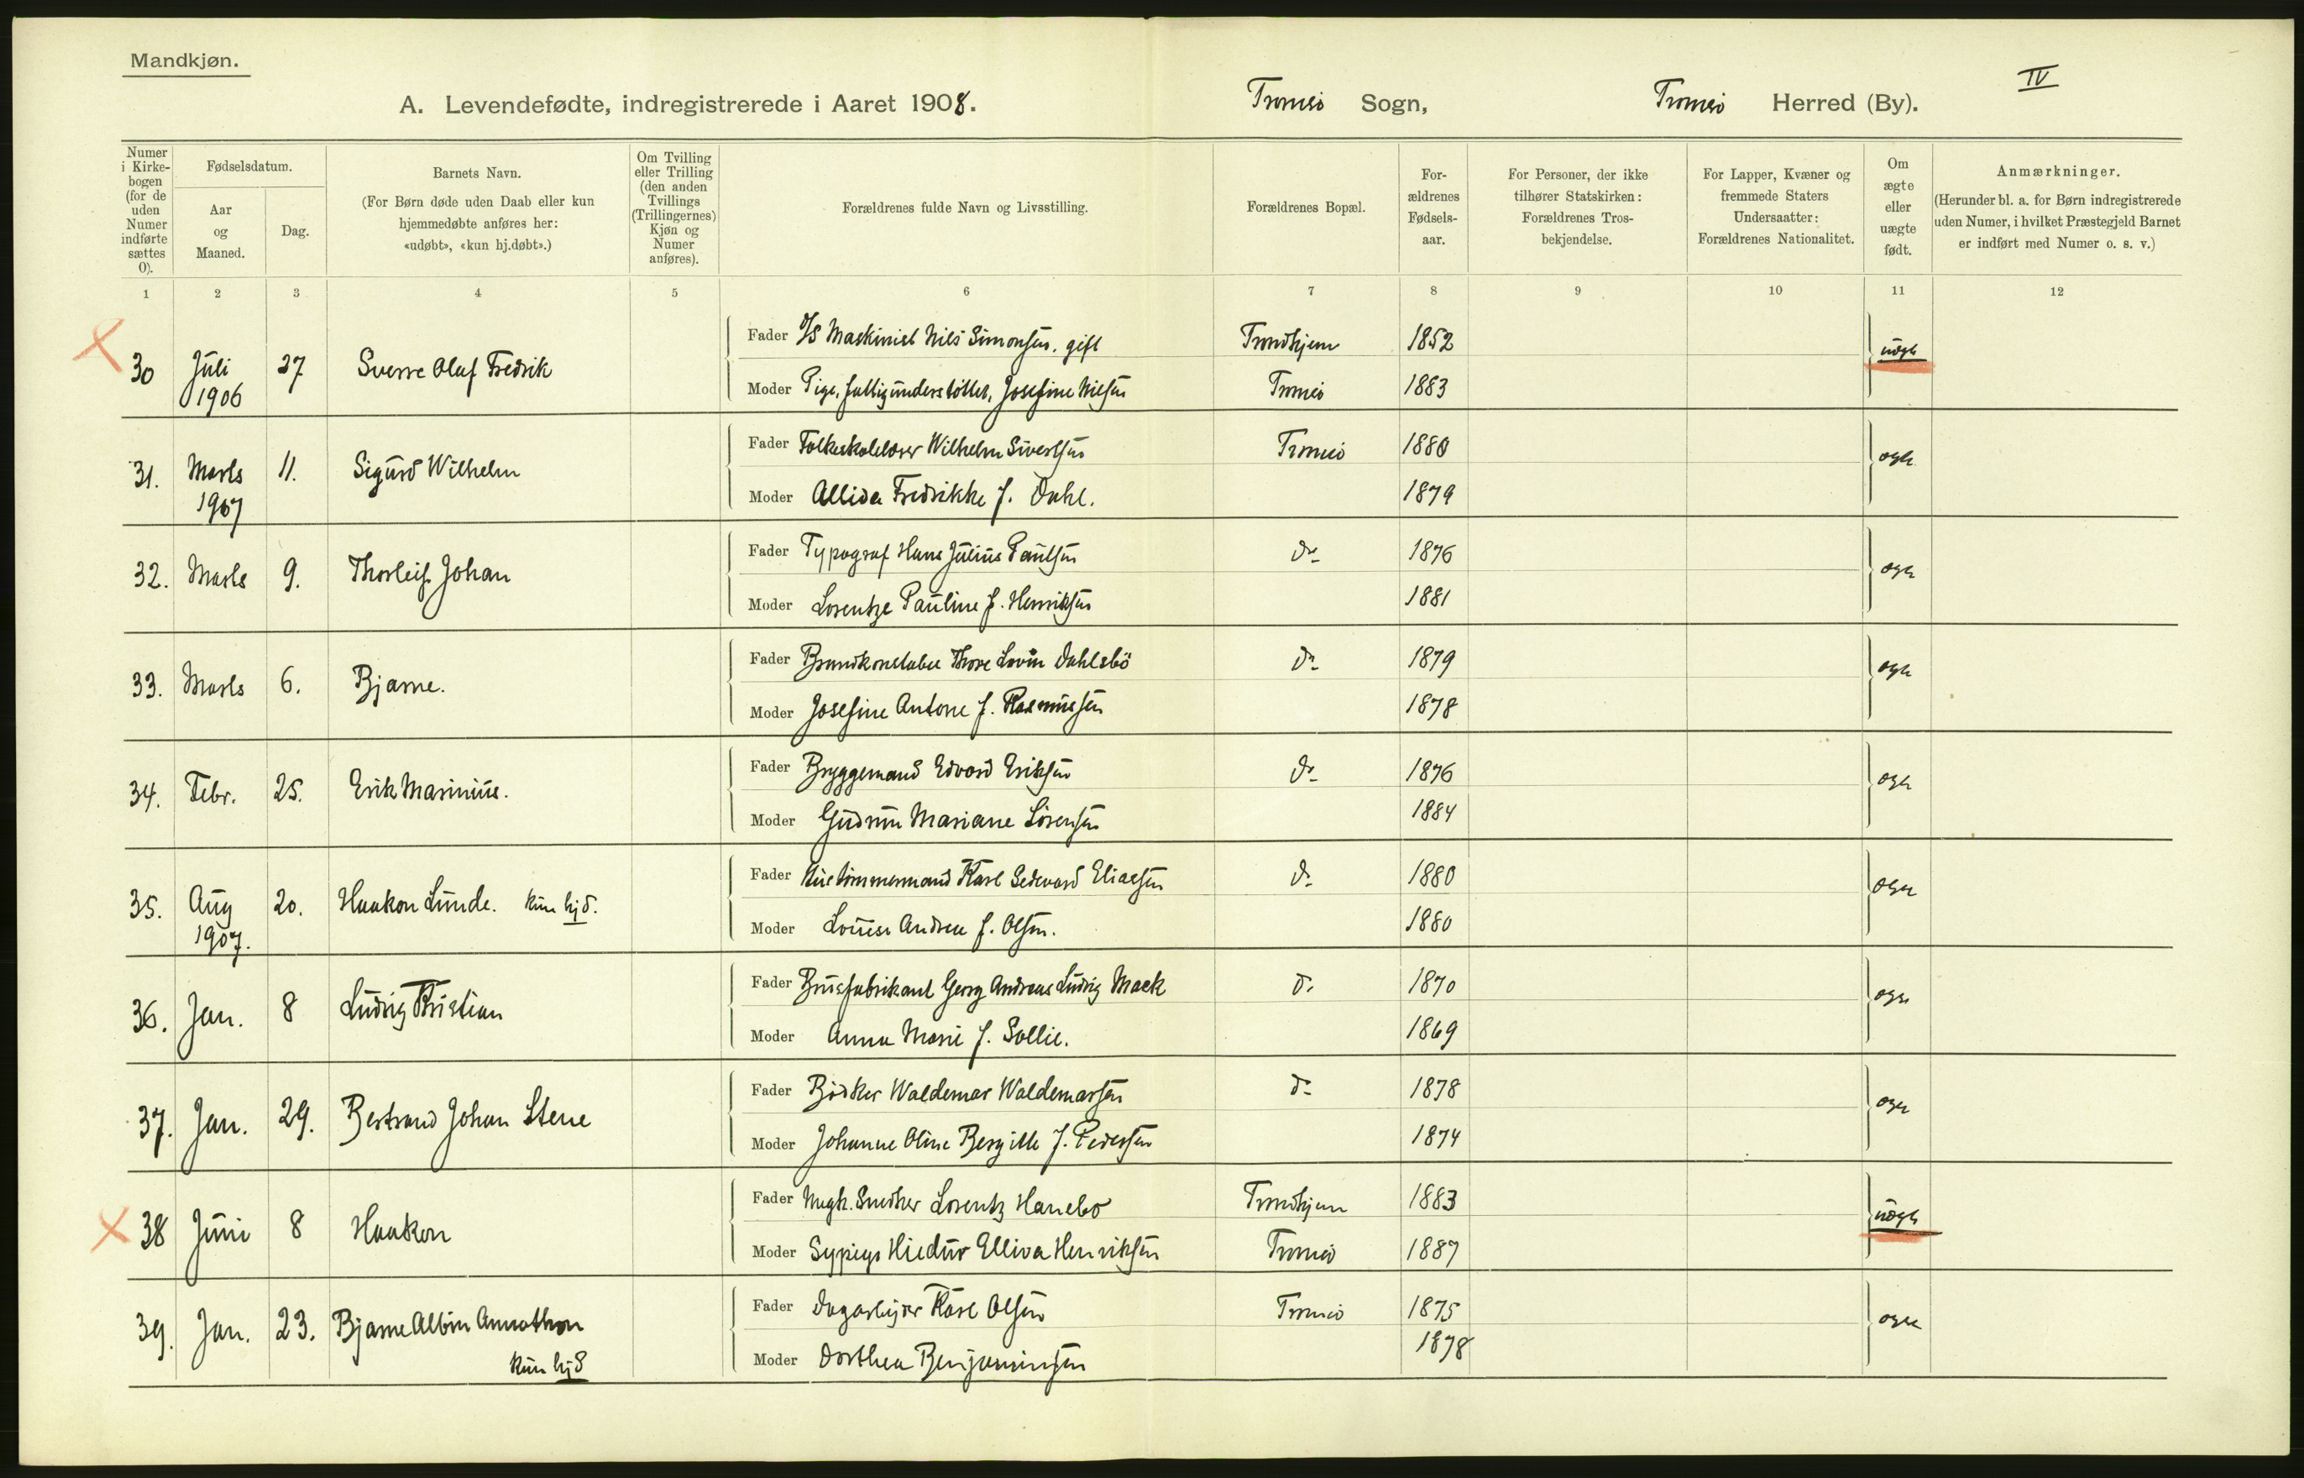 Mandkjøn.
IV
A. Levendefødte, indregistrerede i Aaret 1908. Tromsø Sogn, Tromsø Herred (By).
Numer i Kirkebogen (for de uden Numer indførte sættes 0).
Fødselsdatum.
Aar og Maaned.
Dag.
Barnets Navn.
(For Børn døde uden Daab eller kun hjemmedøbte anføres her: «udøbt», «kun hj.døbt».)
Om Tvilling eller Trilling (den anden Tvillings (Trillingernes) Kjøn og Numer anføres).
Forældrenes fulde Navn og Livsstilling.
Forældrenes Bopæl.
For-ældrenes Fødsels-aar.
For Personer, der ikke tilhører Statskirken: Forældrenes Tros-bekjendelse.
For Lapper, Kvæner og fremmede Staters Undersaatter: Forældrenes Nationalitet.
Om ægte eller uægte født.
Anmærkninger.
(Herunder bl. a. for Børn indregistrerede uden Numer, i hvilket Præstegjeld Barnet er indført med Numer o. s. v.)
1 2 3 4 5 6 7 8 9 10 11 12
Fader D/S Maskinist Nils Simonsen, gift Trondhjem 1852
30 Juli 1906 27 Sverre Olaf Fredrik uægte
Moder Pige, fattigunderstøttet, Josefine Nilsen Tromsø 1883
Fader Folkeskolelærer Wilhelm Sivertsen Tromsø 1880
31. Marts 1907 11. Sigurd Wilhelm ægte
Moder Allida Fredrikke f. Dahl. 1879
Fader Typograf Hans Julius Paulsen do 1876
32. Marts 9. Thorleif Johan ægte
Moder Lorentze Pauline f. Henriksen 1881
Fader Brandkonstabel Thore Dahlsbö do 1879
33. Marts 6. Bjarne. ægte
Moder Josefine Antone f. Rasmussen 1878
Fader Bryggemand Edvard Eriksen do 1876
34. Febr. 25. Erik Marinius. ægte
Moder Gudrun Mariane Sörensen 1884
Fader Hustömmermand Karl Sedevard Eliassen do 1880
35. Aug 1907. 20. Haakon Lunde. kun hjd. ægte
Moder Louise Andrea f. Olsen. 1880
Fader Brusfabrikant Georg Andreas Ludvig Mack do 1870
36. Jan. 8 Ludvig Kristian ægte
Moder Anna Marie f. Sollie. 1869
Fader Bödker Waldemar Waldemarsen do 1878
37. Jan. 29. Bertrand Johan Stene ægte
Moder Johanne Oline Bergitte f. Pedersen 1874
Fader Ungk. Snedker Lorentz Hanebo Trondhjem 1883
38 Juni 8 Haakon uægte
Moder Sypige Ellida Henriksen Tromsø 1887
Fader Dagarbejder Karl Olsen Tromsø 1875
39. Jan. 23. Bjarne Albin Annathon ægte
kun hjd
Moder Dorthea Benjaminsen 1878